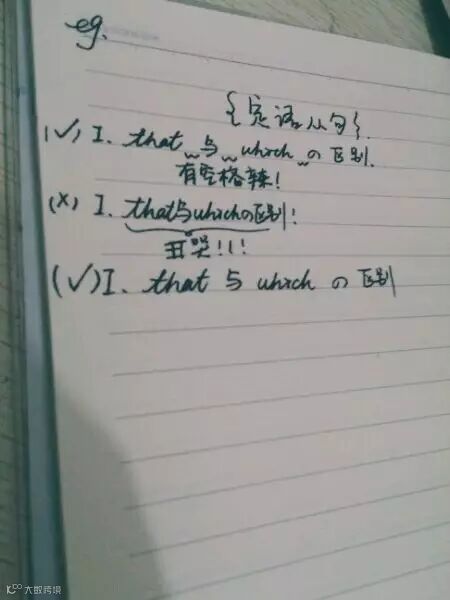 eg.
{定语从句}.
(✓) I. that 与 which の区别.
有空格辣!
(×) I. that与whichの区别!
丑哭!!!
(✓) I. that 与 which の 区别
大数跨境